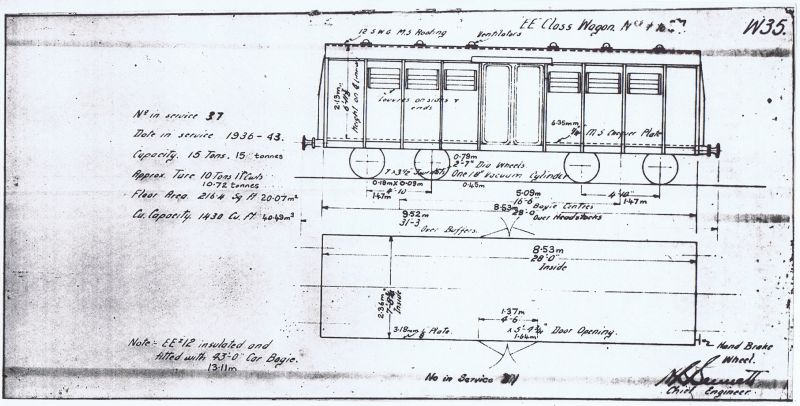 EE Class Wagon.
W35.
12 SWG M.S Roofing
Ventilators
2·13m
height on
Louvres on sides &
ends
6·35mm
M.S Chequer Plate
No in service 37
Date in service 1936-43.
Capacity. 15 Tons. 15 tonnes
Approx. Tare 10 Tons 11 Cwts
10·72 tonnes
Floor Area 216·4 Sq Ft 20·07m²
Cu. Capacity 1430 Cu. Ft 40·49m³
0·79m
2'-7" Dia Wheels
7"x3½" Journals
One 18" Vacuum Cylinder
0·18m X 0·09m
0·45m
4'-10"
1·47m
5·09m
16'-8"
Bogie Centres
4'-10"
1·47m
8·53m
28'-0
Over Headstocks
9·52m
31-3
Over Buffers.
8·53m
28'-0"
Inside
2·36m
Inside
1·37m
4'-6"
x 5'-4¾"
1·64m
Door Opening.
3·18mm
Plate.
Hand Brake
Wheel.
Note:- EE 12 insulated and
fitted with 43'-0" Car Bogie.
13·11m
No in Service
Chief Engineer